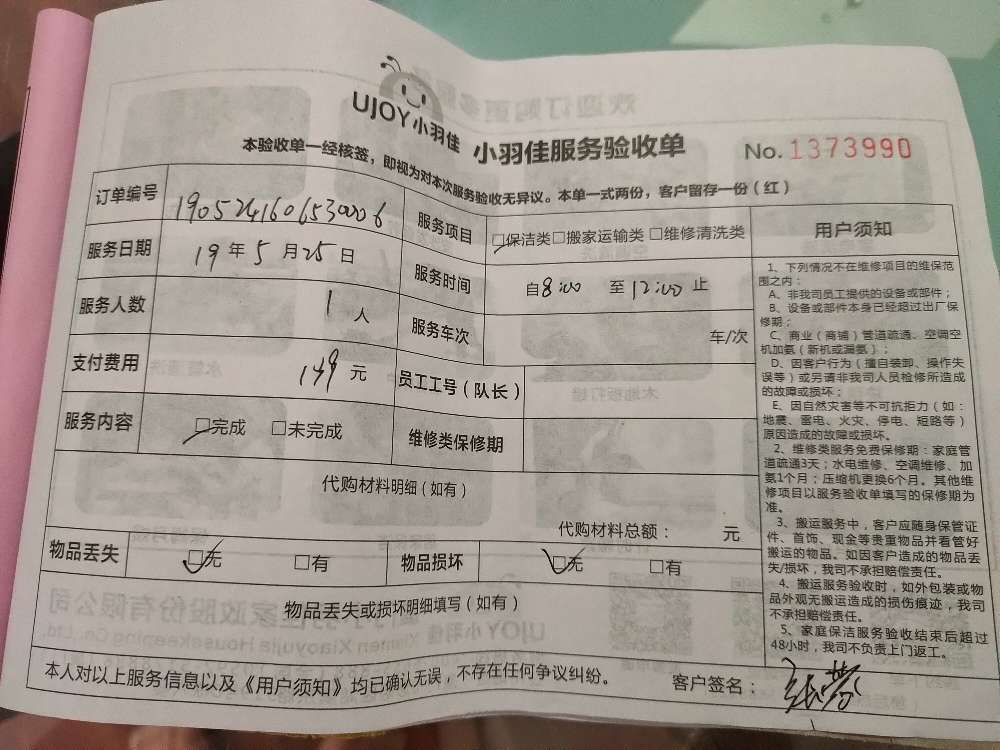 UJOY小羽佳
小羽佳服务验收单
No.1373990
本验收单一经核签，即视为对本次服务验收无异议。本单一式两份，客户留存一份（红）
订单编号 190524160653000 6
服务项目 □保洁类□搬家运输类 □维修清洗类
服务日期 19年5月25日
服务时间 自8:00 至12:00止
服务人数 1人
服务车次 车/次
支付费用 149元
员工工号（队长）
服务内容 □完成 □未完成
维修类保修期
代购材料明细（如有）
代购材料总额： 元
物品丢失 □无 □有
物品损坏 □无 □有
物品丢失或损坏明细填写（如有）
本人对以上服务信息以及《用户须知》均已确认无误，不存在任何争议纠纷。
客户签名：
用户须知
1、下列情况不在维修项目的维保范
围之内：
A、非我司员工提供的设备或部件；
B、设备或部件本身已经超过出厂保
修期；
C、商业（商铺）管道疏通、空调空
机加氨（新机或漏氨）；
D、因客户行为（擅自装卸、操作失
误等）或另请非我司人员检修所造成
的故障或损坏；
E、因自然灾害等不可抗拒力（如：
地震、雷电、火灾、停电、短路等）
原因造成的故障或损坏。
2、维修类服务免费保修期：家庭管
道疏通3天；水电维修、空调维修、加
氨1个月；压缩机更换6个月。其他维
修项目以服务验收单填写的保修期为
准。
3、搬运服务中，客户应随身保管证
件、首饰、现金等贵重物品并看管好
搬运的物品。如因客户造成的物品丢
失/损坏，我司不承担赔偿责任。
4、搬运服务验收时，如外包装或物
品外观无搬运造成的损伤痕迹，我司
不承担赔偿责任。
5、家庭保洁服务验收结束后超过
48小时，我司不负责上门返工。